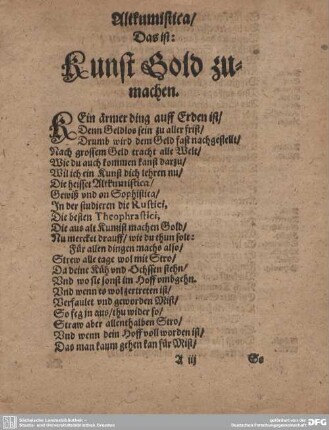 Altkumistica/
Das ist:
Kunst Gold zu-
machen.
KEin ärmer ding auff Erden ist/
Denn Geldlos sein zu aller frist/
Drumb wird dem Geld fast nachgestelt/
Nach grossem Geld tracht alle Welt/
Wie du auch kommen kanst darzu/
Wil ich ein Kunst dich lehren nu/
Die heisset Altkumistica/
Gewiß vnd on Sophistica/
In der studieren die Rustici,
Die besten Theophrastici,
Die aus alt Kumist machen Gold/
Nu mercket drauff/ wie du thun solt:
Für allen dingen machs also/
Strew alle tage wol mit Stro/
Da deine Küh vnd Ochssen stehn/
Vnd wo sie sonst im Hoff vmbgehn.
Vnd wenn es wol zertreten ist/
Verfaulet vnd geworden Mist/
So feg in aus/ thu wider so/
Straw aber allenthalben Stro/
Vnd wenn dein Hoff voll worden ist/
Das man kaum gehen kan für Mist/
A iij So
Sächsische Landesbibliothek -
Staats- und Universitätsbibliothek Dresden
gefördert von der
Deutschen Forschungsgemeinschaft
DFG